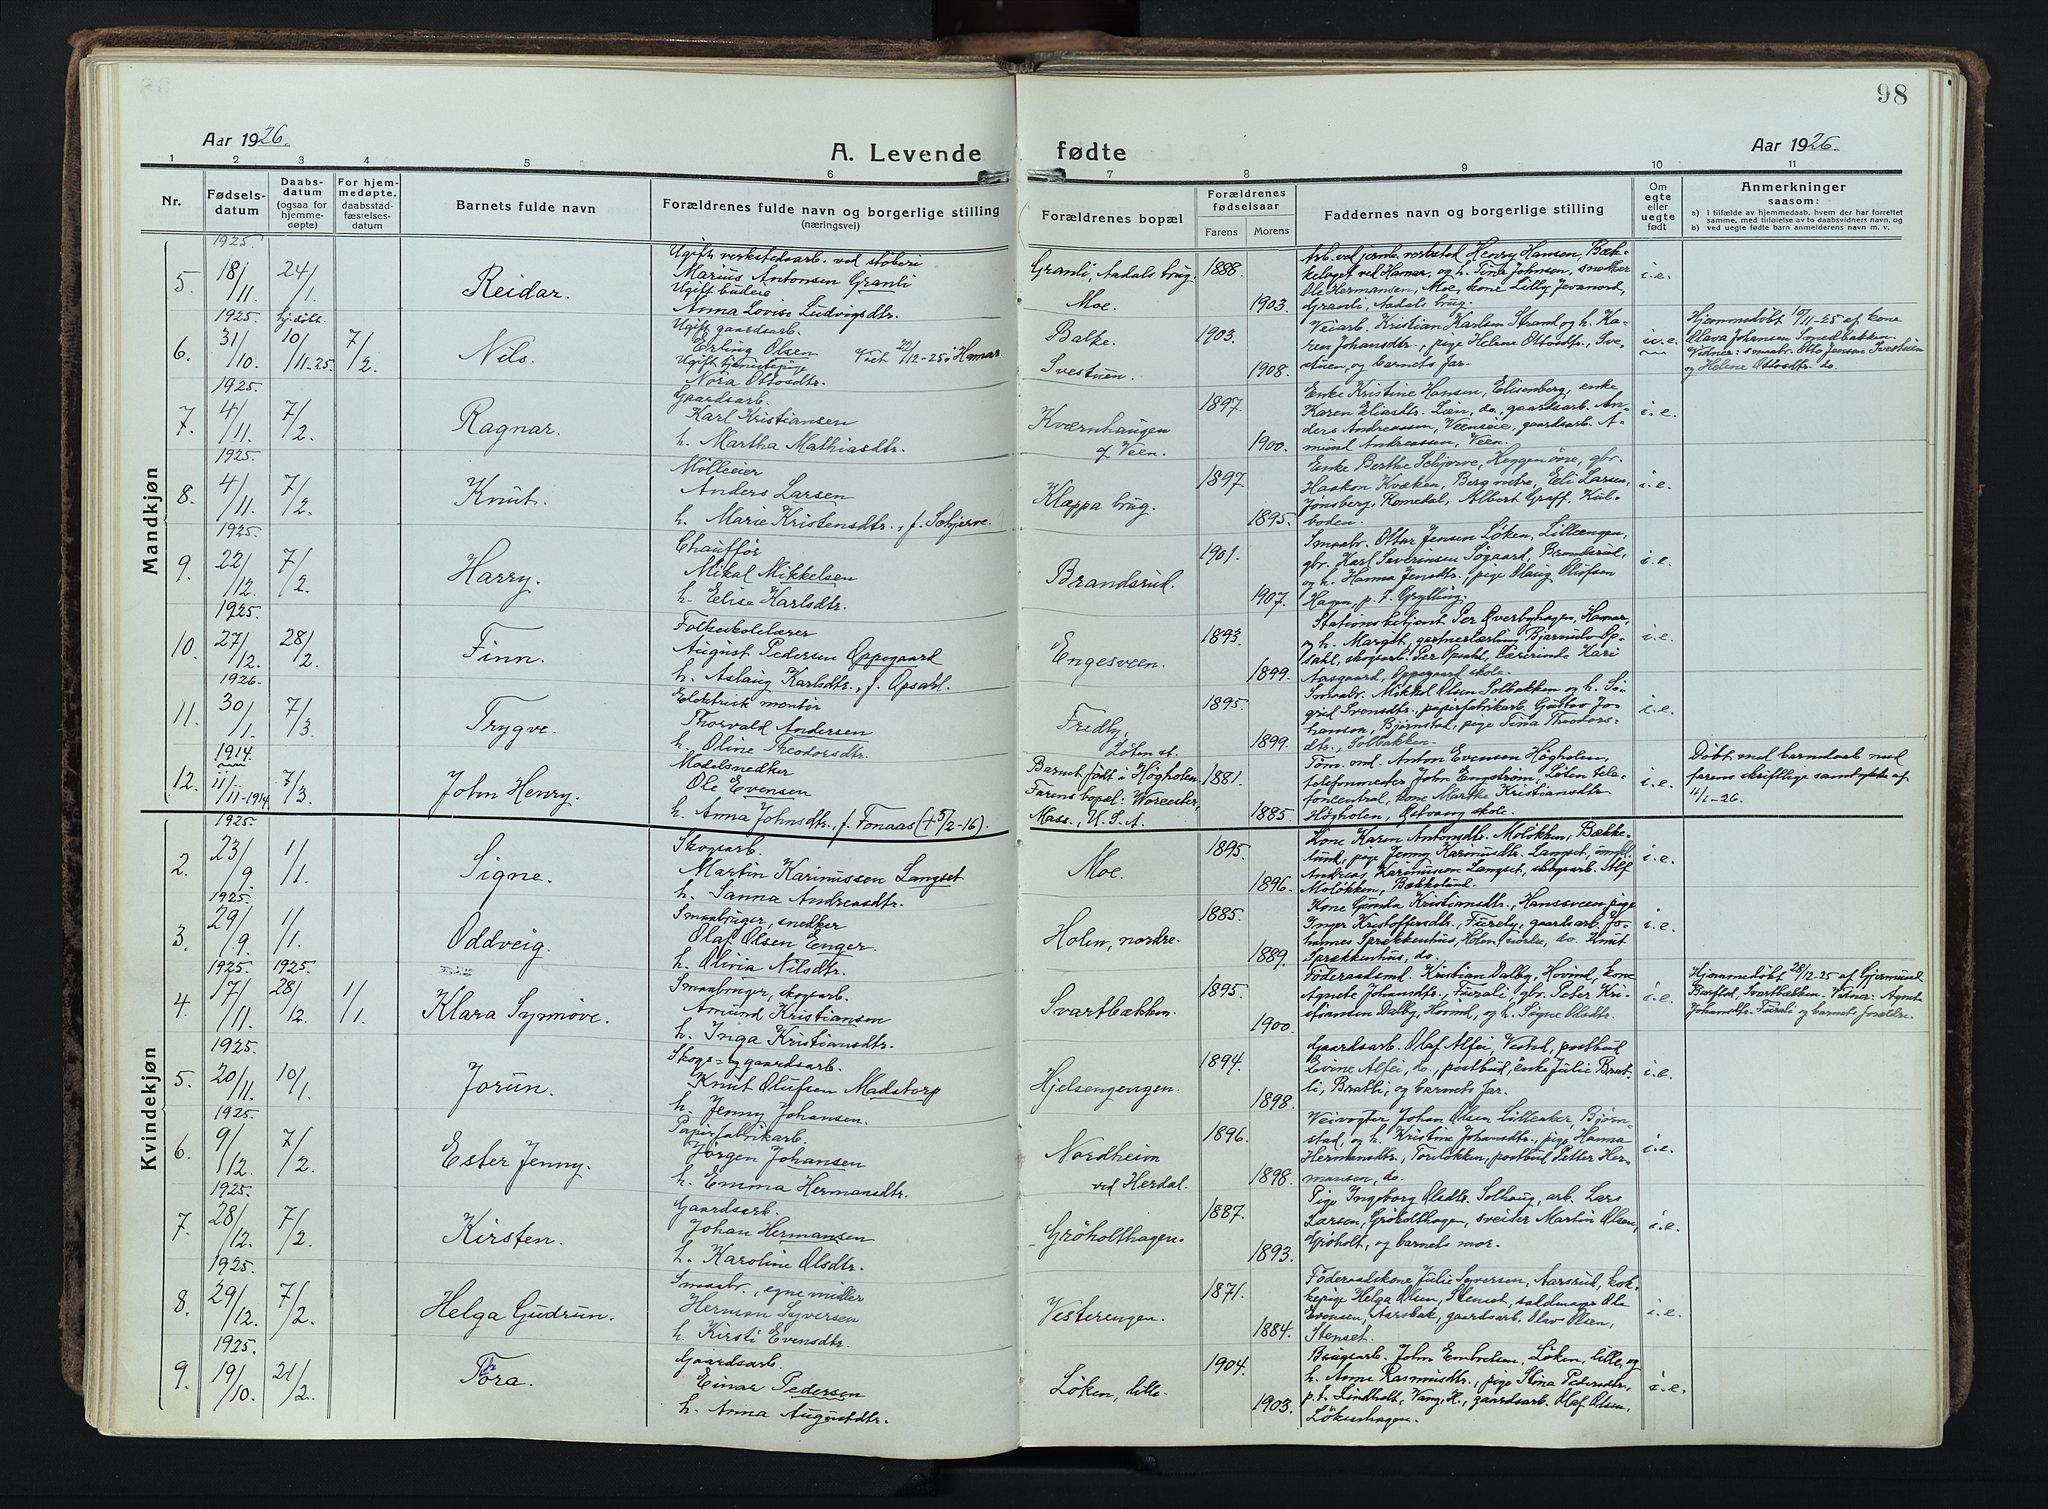 98
Aar 1926.
A. Levende fødte
Aar 1926.
1 2 3 4 5 6 7 8 9 10 11
Nr.
Fødselsdatum
Daabsdatum (ogsaa for hjemmedøpte)
For hjemmedøpte, daabsstadfæstelsesdatum
Barnets fulde navn
Forældrenes fulde navn og borgerlige stilling (næringsvei)
Forældrenes bopæl
Forældrenes fødselsaar
Farens Morens
Faddernes navn og borgerlige stilling
Om egte eller uegte født
Anmerkninger saasom:
a) I tilfælde av hjemmedaab, hvem der har forrettet samme, med tilføielse av to daabsvidners navn, og
b) ved uegte fødte barn anmelderens navn m. v.
Mandkjøn
1925.
5. 18/11. 24/1. Reidar.
Ugift verkstedsarb. ved støberi
Marius Antonsen Granli
Ugift budeie
Anna Lovise Ludvigsdtr.
Granli, Aadals brug.
Moe.
1888.
1903.
Arb. ved jernb. verksted Henry Hansen, Bæk-
kelaget ved Hamar, og h. Tina Johnsen, snedker
Ole Hermansen, Moe, kone Lilly Jevanord,
Granli, Aadals brug.
i.e.
1925. hj.døbt.
6. 31/10. 10/11-25. 7/2. Nils.
Ugift gaardsarb.
Erling Olsen Viet 22/12-25 i Hamar.
Ugift tjenestepige
Nora Ottosdtr.
Balke.
Svestuen.
1903.
1908.
Veiarb. Kristian Karlsen Strand og h. Ka-
ren Johansdtr., pige Helene Ottosdtr., Sve-
stuen, og barnets far.
u.e.
Hjemmedøbt 10/11-25 af kone
Olava Johansen Smedbakken.
Vidner: smaabr. Otto Jensen Svestuen
og Helene Ottosdtr. do.
1925.
7. 4/11. 7/2. Ragnar.
Gaardsarb.
Karl Kristiansen
h. Martha Mathiasdtr.
Kværnhaugen
af Veen.
1897.
1900.
Enke Kristine Hansen, Elisenberg, enke
Karen Eliasdtr. Lien, do., gaardsarb. An-
ders Andreassen, Veenseie, gaardsarb. A-
mund Andreassen, Veen.
i.e.
1925.
8. 4/11. 7/2. Knut.
Mølleeier
Anders Larsen
h. Marie Kristensdtr., f. Schjerve.
Klæppa brug.
1897.
1895.
Enke Berthe Schjerve, Heggenørre, gbr.
Haakon Kvæken, Berg vestre, Eli Larsen,
Jønsberg, Romedal, Albert Graff, Kul-
boden.
i.e.
1925.
9. 22/12. 7/2. Harry.
Chauffør
Mikal Mikkelsen
h. Elise Karlsdtr.
Brandsrud.
1901.
1907.
Smaabr. Ottar Jensen Løken, Lilleengen,
gbr. Karl Severinsen Søgaard, Brandsrud,
og h. Hanna Jensdtr., pige Olaug Olufsen
Hagen, p. t. Grylling.
i.e.
1925.
10. 27/12. 28/2. Finn.
Folkeskolelærer
August Pedersen Oppegaard
h. Aslaug Karlsdtr., f. Opsahl.
Engesveen.
1893.
1899.
Stationsbetjent Per Øverbyhagen, Hamar,
og h. Margit, gartnerlærling Bjarnulv Op-
sahl, skogsarb. Per Opsahl, lærerinde Kari
Aasgaard, Oppegaard skole.
i.e.
1926.
11. 30/1. 7/3. Trygve.
Elektrisk montør
Thorvald Andersen
h. Oline Theodorsdtr.
Fredly,
Løten st.
1895.
1899.
Smaabr. Mikkel Olsen Solbakken og h. Si-
grid Svensdtr., papirfabrikarb. Gustav Jo-
hansen, Bjørnstad, pige Tina Theodors-
dtr., Solbakken.
i.e.
1914
12. 11/11-1914. 7/3. John Henry.
Modelsnedker
Ole Evensen
h. Anna Johnsdtr., f. Fonaas (+ 5/2-16).
Barnet født i Høgholen.
Farens bopæl: Worcester,
Mass., U.S.A.
1881.
1885.
Tøm. md. Anton Evensen Høgholen,
telefonmester John Engstrøm, Løten tele-
foncentral, kone Marthe Kristiansdtr.
Høgholen, Østvang skole.
i.e.
Døbt med barnedaab med
farens skriftlige samtykke af
11/1-26.
Kvindekjøn
1925.
2. 23/9. 1/1. Signe.
Skogsarb.
Martin Karinussen Langset
h. Sanna Andreasdtr.
Moe.
1895.
1896.
Kone Karen Antonsdtr. Moløkken, Bække-
lund, pige Jenny Karinusdtr. Langset, ungkl.
Andreas Karinussen Langset, skogsarb. Alf
Moløkken, Bækkelund.
i.e.
1925.
3. 29/9. 1/1. Oddveig.
Smaabruger, snedker
Olaf Olsen Enger
h. Olivia Nilsdtr.
Holm, nordre.
1885.
1889.
Kone Gunda Kristiansdtr., Hansveen, pige
Inger Kristoffersdtr., Furely, gaardsarb. Jo-
hannes Sprækkenhus, Holm, nordre, do. Knut
Sprækkenhus, do.
i.e.
1925. 1925.
4. 17/11. 28/12. 1/1. Klara Synnøve.
Smaabruger, skogsarb.
Amund Kristiansen
h. Inga Kristiansdtr.
Svartbækken.
1895.
1900.
Føderaadsmd. Kristian Dalby, Hovind, kone
Agnete Johansdtr., Furali, gbr. Peter Kri-
stiansen Dalby, Hovind, og h. Signe Olsdtr.
i.e.
Hjemmedøbt 28/12-25 af Gjermund
Barstad, Svartbækken. Vidner: Agnete
Johansdtr. Furali og barnets forældre.
1925.
5. 20/11. 10/1. Jorun.
Skogs- og gaardsarb.
Knut Olufsen Madstorp
h. Jenny Johansen.
Hjelsengengen.
1894.
1898.
Gaardsarb. Olaf Alfei Vestad, postbud
Levine Alfei, do., postbud, enke Julie Brat-
li, Bratli, og barnets far.
i.e.
1925.
6. 9/12. 7/2. Ester Jenny.
Papirfabrikarb.
Jørgen Johansen
h. Emma Hermansdtr.
Nordheim
ved Herdal.
1896.
1898.
Veivogter Johan Olsen Lilleaker, Bjørn-
stad, og h. Kristine Johansdtr., pige Hanna
Hermansdtr., Toreløkken, postbud Petter Her-
mansen, do.
i.e.
1925.
7. 28/12. 7/2. Kirsten.
Gaardsarb.
Johan Hermansen
h. Karoline Olsdtr.
Grøholthagen.
1887.
1893.
Pige Ingeborg Olsdtr. Solhaug, arb. Lars
Larsen, Grøholthagen, sveiser Martin Olsen,
Grøholt, og barnets mor.
i.e.
1925.
8. 29/12. 7/2. Helga Gudrun.
Smaabr., egne midler
Herman Syversen
h. Kirsti Evensdtr.
Vesterengen.
1871.
1884.
Føderaadskone Julie Syversen, Aarsrud, kok-
kepige Helga Olsen, Stenset, saldmager Ole
Evensen, Aarsbak, gaardsarb. Olav Olsen,
Stenset.
i.e.
1925.
9. 19/10. 21/2. Thora.
Gaardsarb.
Einar Pedersen
h. Anna Augustdtr.
Løken, lille.
1904.
1903.
Brugsarb. John Embretsen, Løken, lille, og
h. Anne Rasmusdtr., pige Stina Pedersdtr.,
p.t. Lindholt, Vang, H., gaardsarb. Olaf Olsen,
Løkenhagen.
i.e.